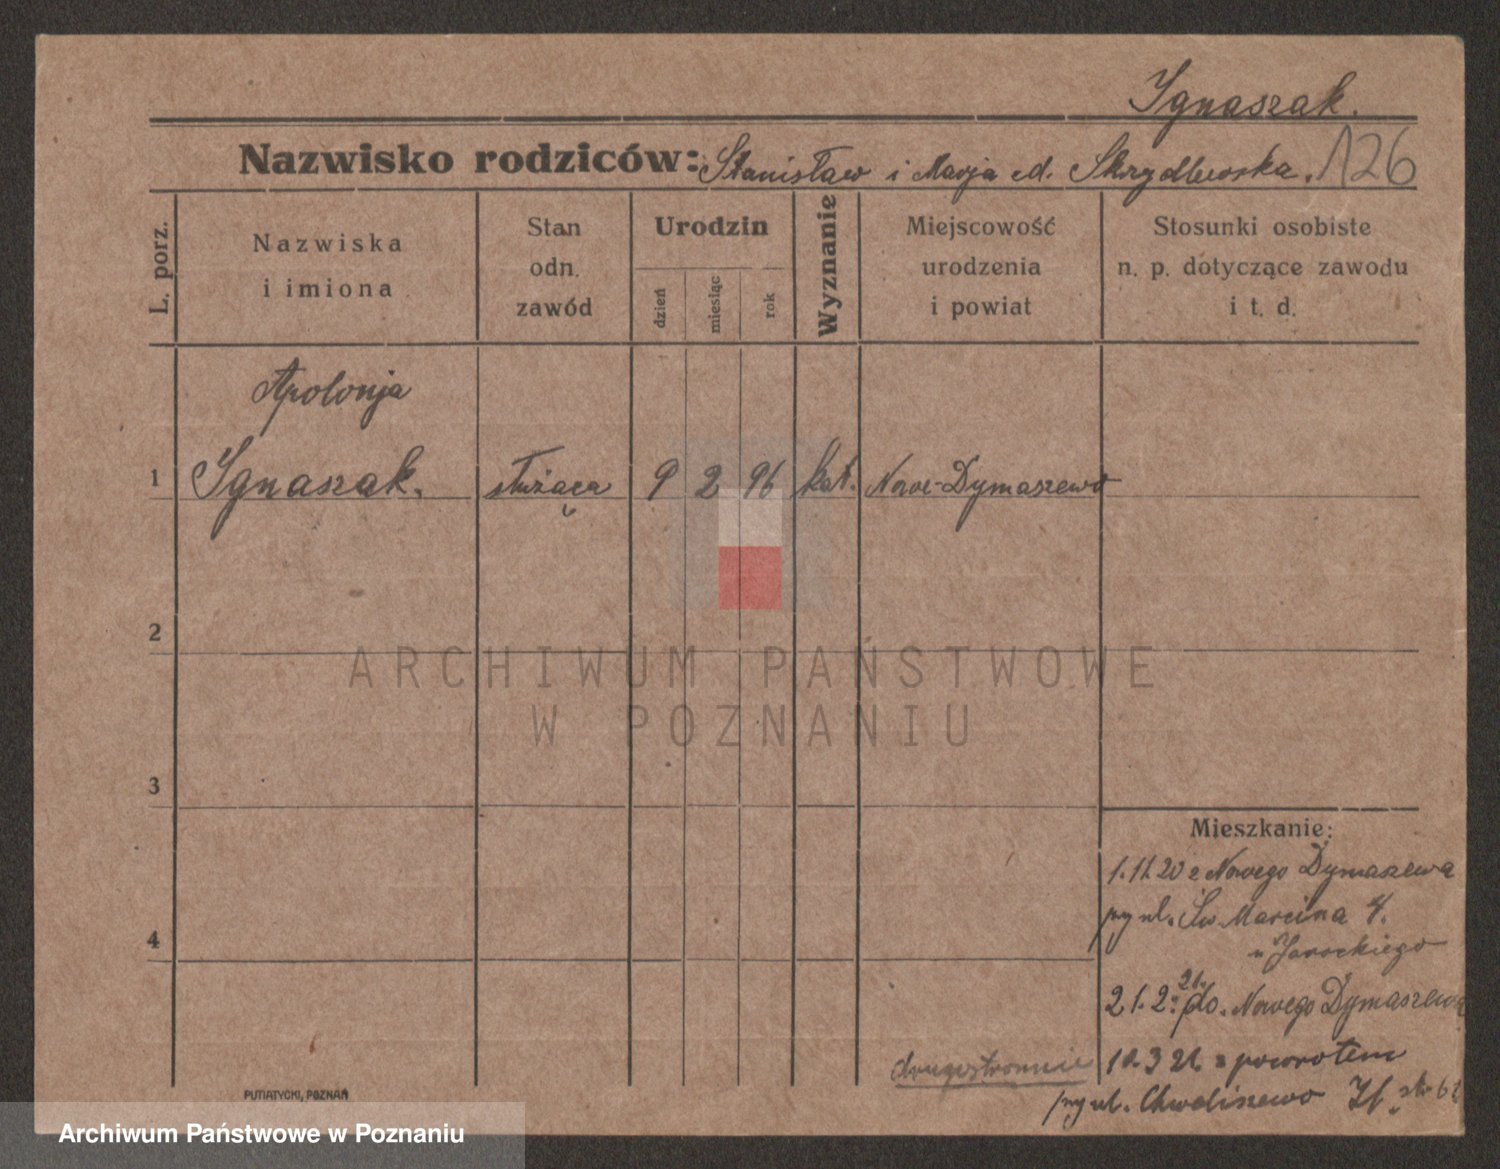 Ignaszak.
Nazwisko rodziców: Stanisław i Marja Skrydlewska. 126
L. porz.
Nazwiska
i imiona
Stan
odn.
zawód
Urodzin
dzień
miesiąc
rok
Wyznanie
Miejscowość
urodzenia
i powiat
Stosunki osobiste
n. p. dotyczące zawodu
i t. d.
Apolonja
1 Ignaszak. służąca 9 2 96 kat. Nowe-Dymaszewo
2
3
4
ARCHIWUM PAŃSTWOWE
W POZNANIU
Mieszkanie:
1.11.20 z Nowego Dymaszewa
przy ul. Św. Marcina 4.
u Jarockiego
21.2. 21. do Nowego Dymaszewa
10.3 21. z powrotem
drugostronnie
przy ul. Chwaliszewo
PUTIATYCKI, POZNAŃ
Archiwum Państwowe w Poznaniu